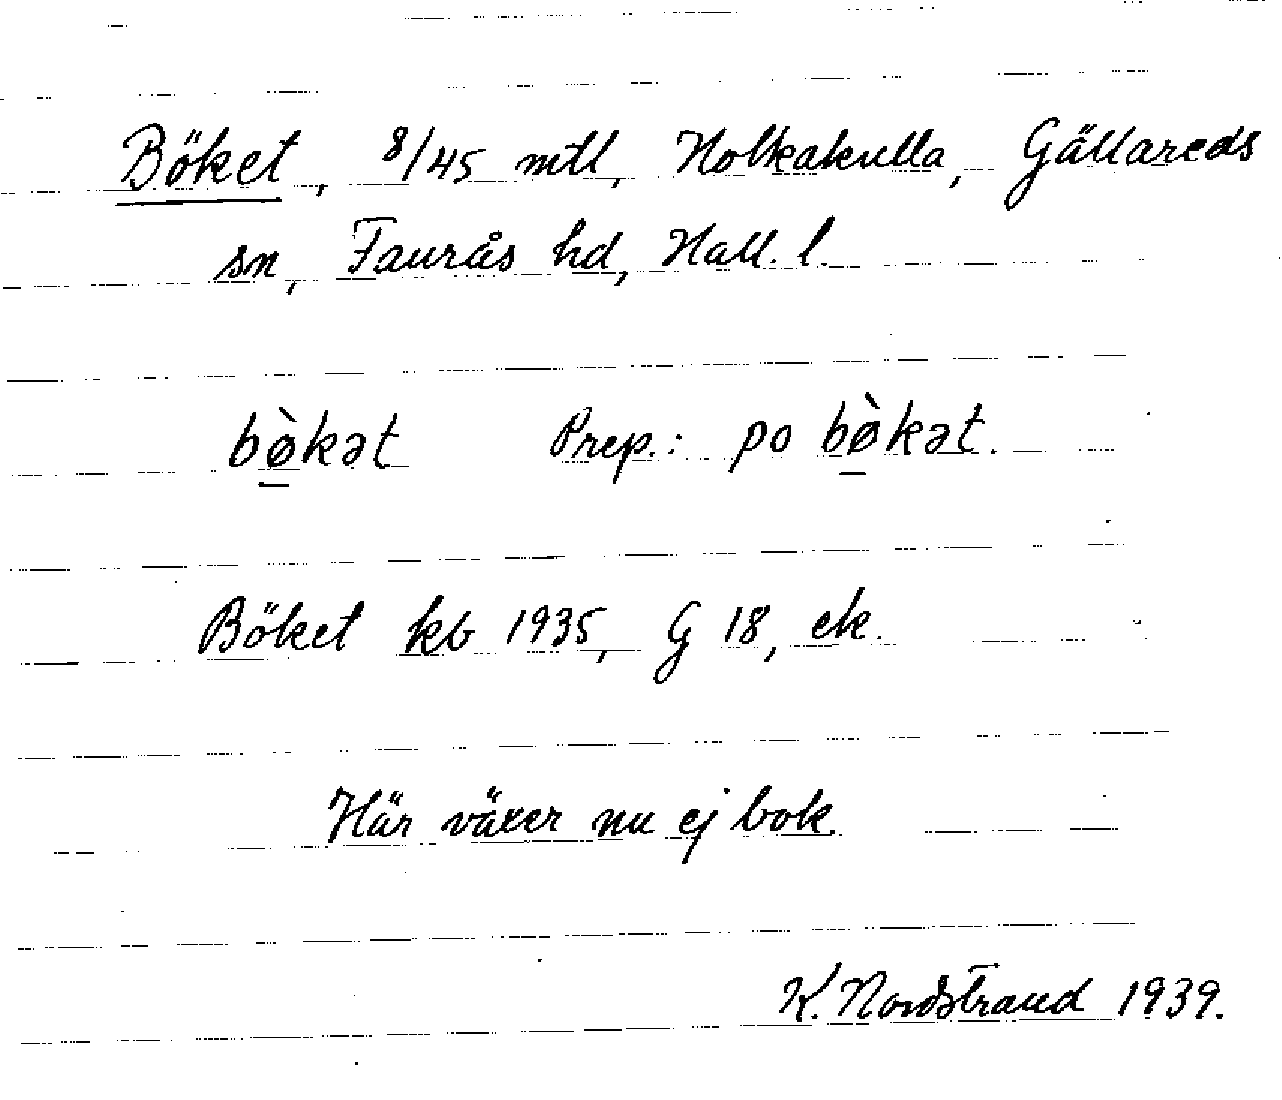 Böket, 8/45 mtl, Holkakulla, Gällareds
sn, Faurås hd, Hall. l.
bø̀kət Prep.: po bø̀kət.
Böket kb 1935, G 18, ek.
Här växer nu ej bok.
K. Nordstrand 1939.